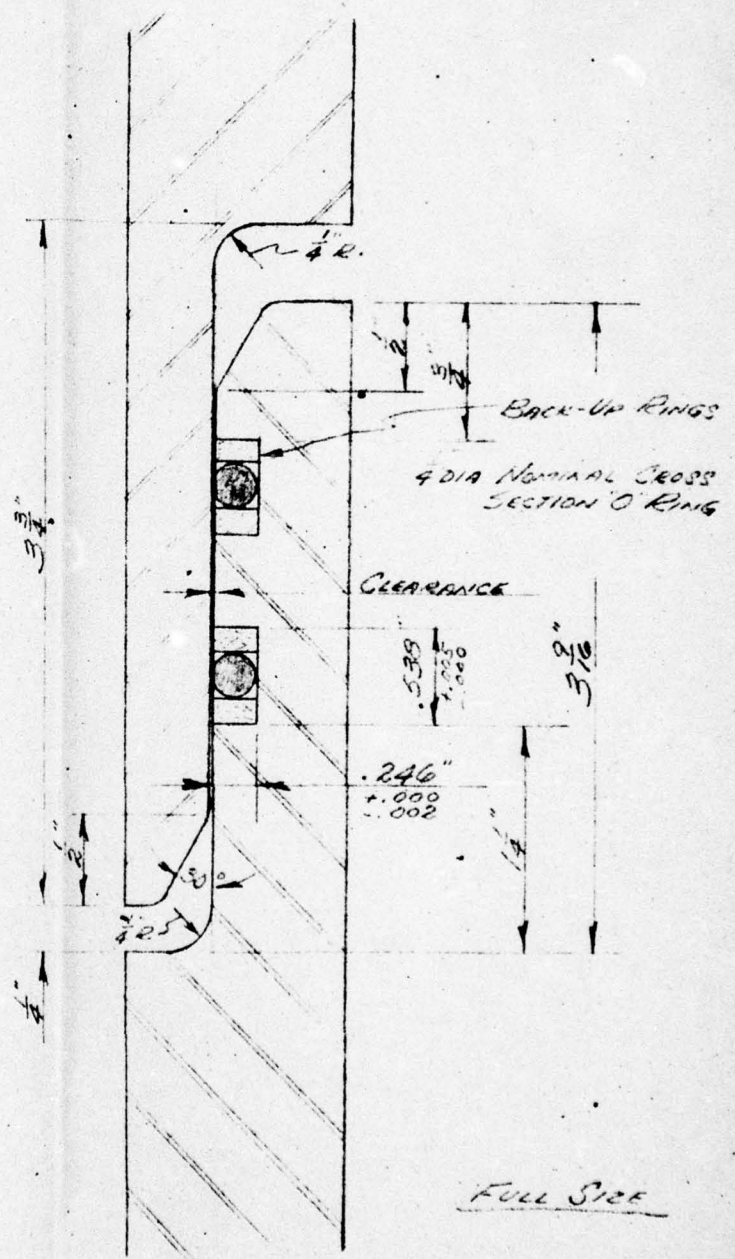 1/4" R.
1/2"
3/4"
BACK-UP RINGS
1/4 DIA NOMINAL CROSS
SECTION "O" RING
3 3/4"
CLEARANCE
.538"
+.005
-.000
3 9/16"
.246"
+.000
-.002
1/2"
30°
1/4 R
1/4"
FULL SIZE